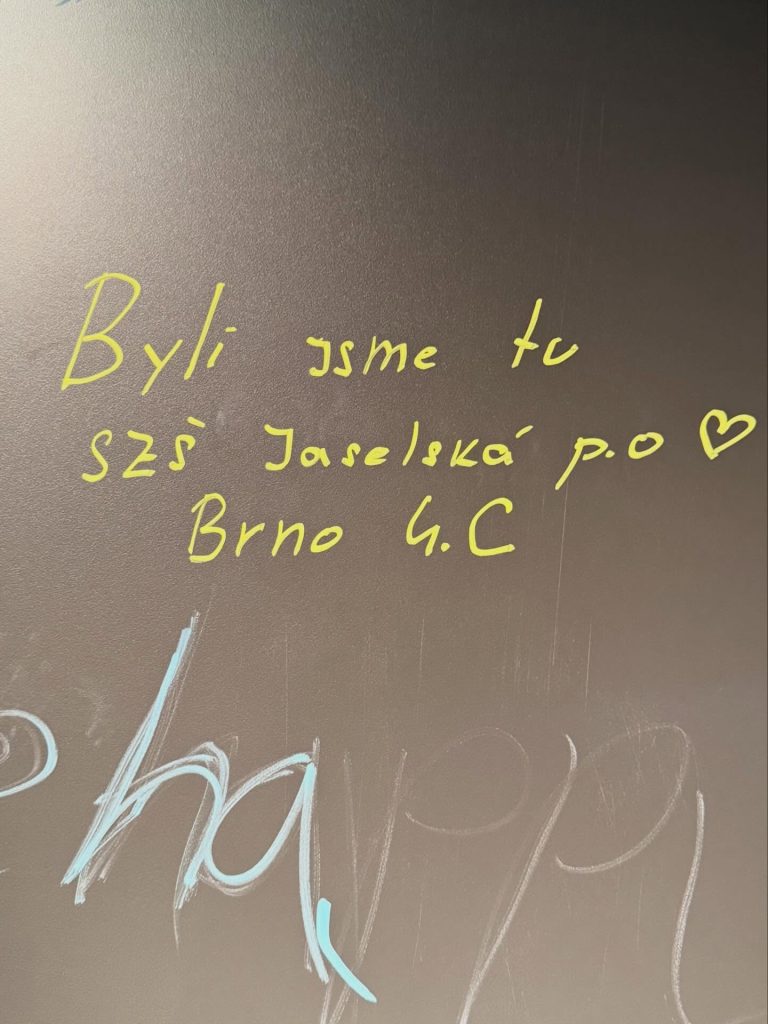 Byli jsme tu
SZŠ Jaselská p.o ♡
Brno 4.C
ha